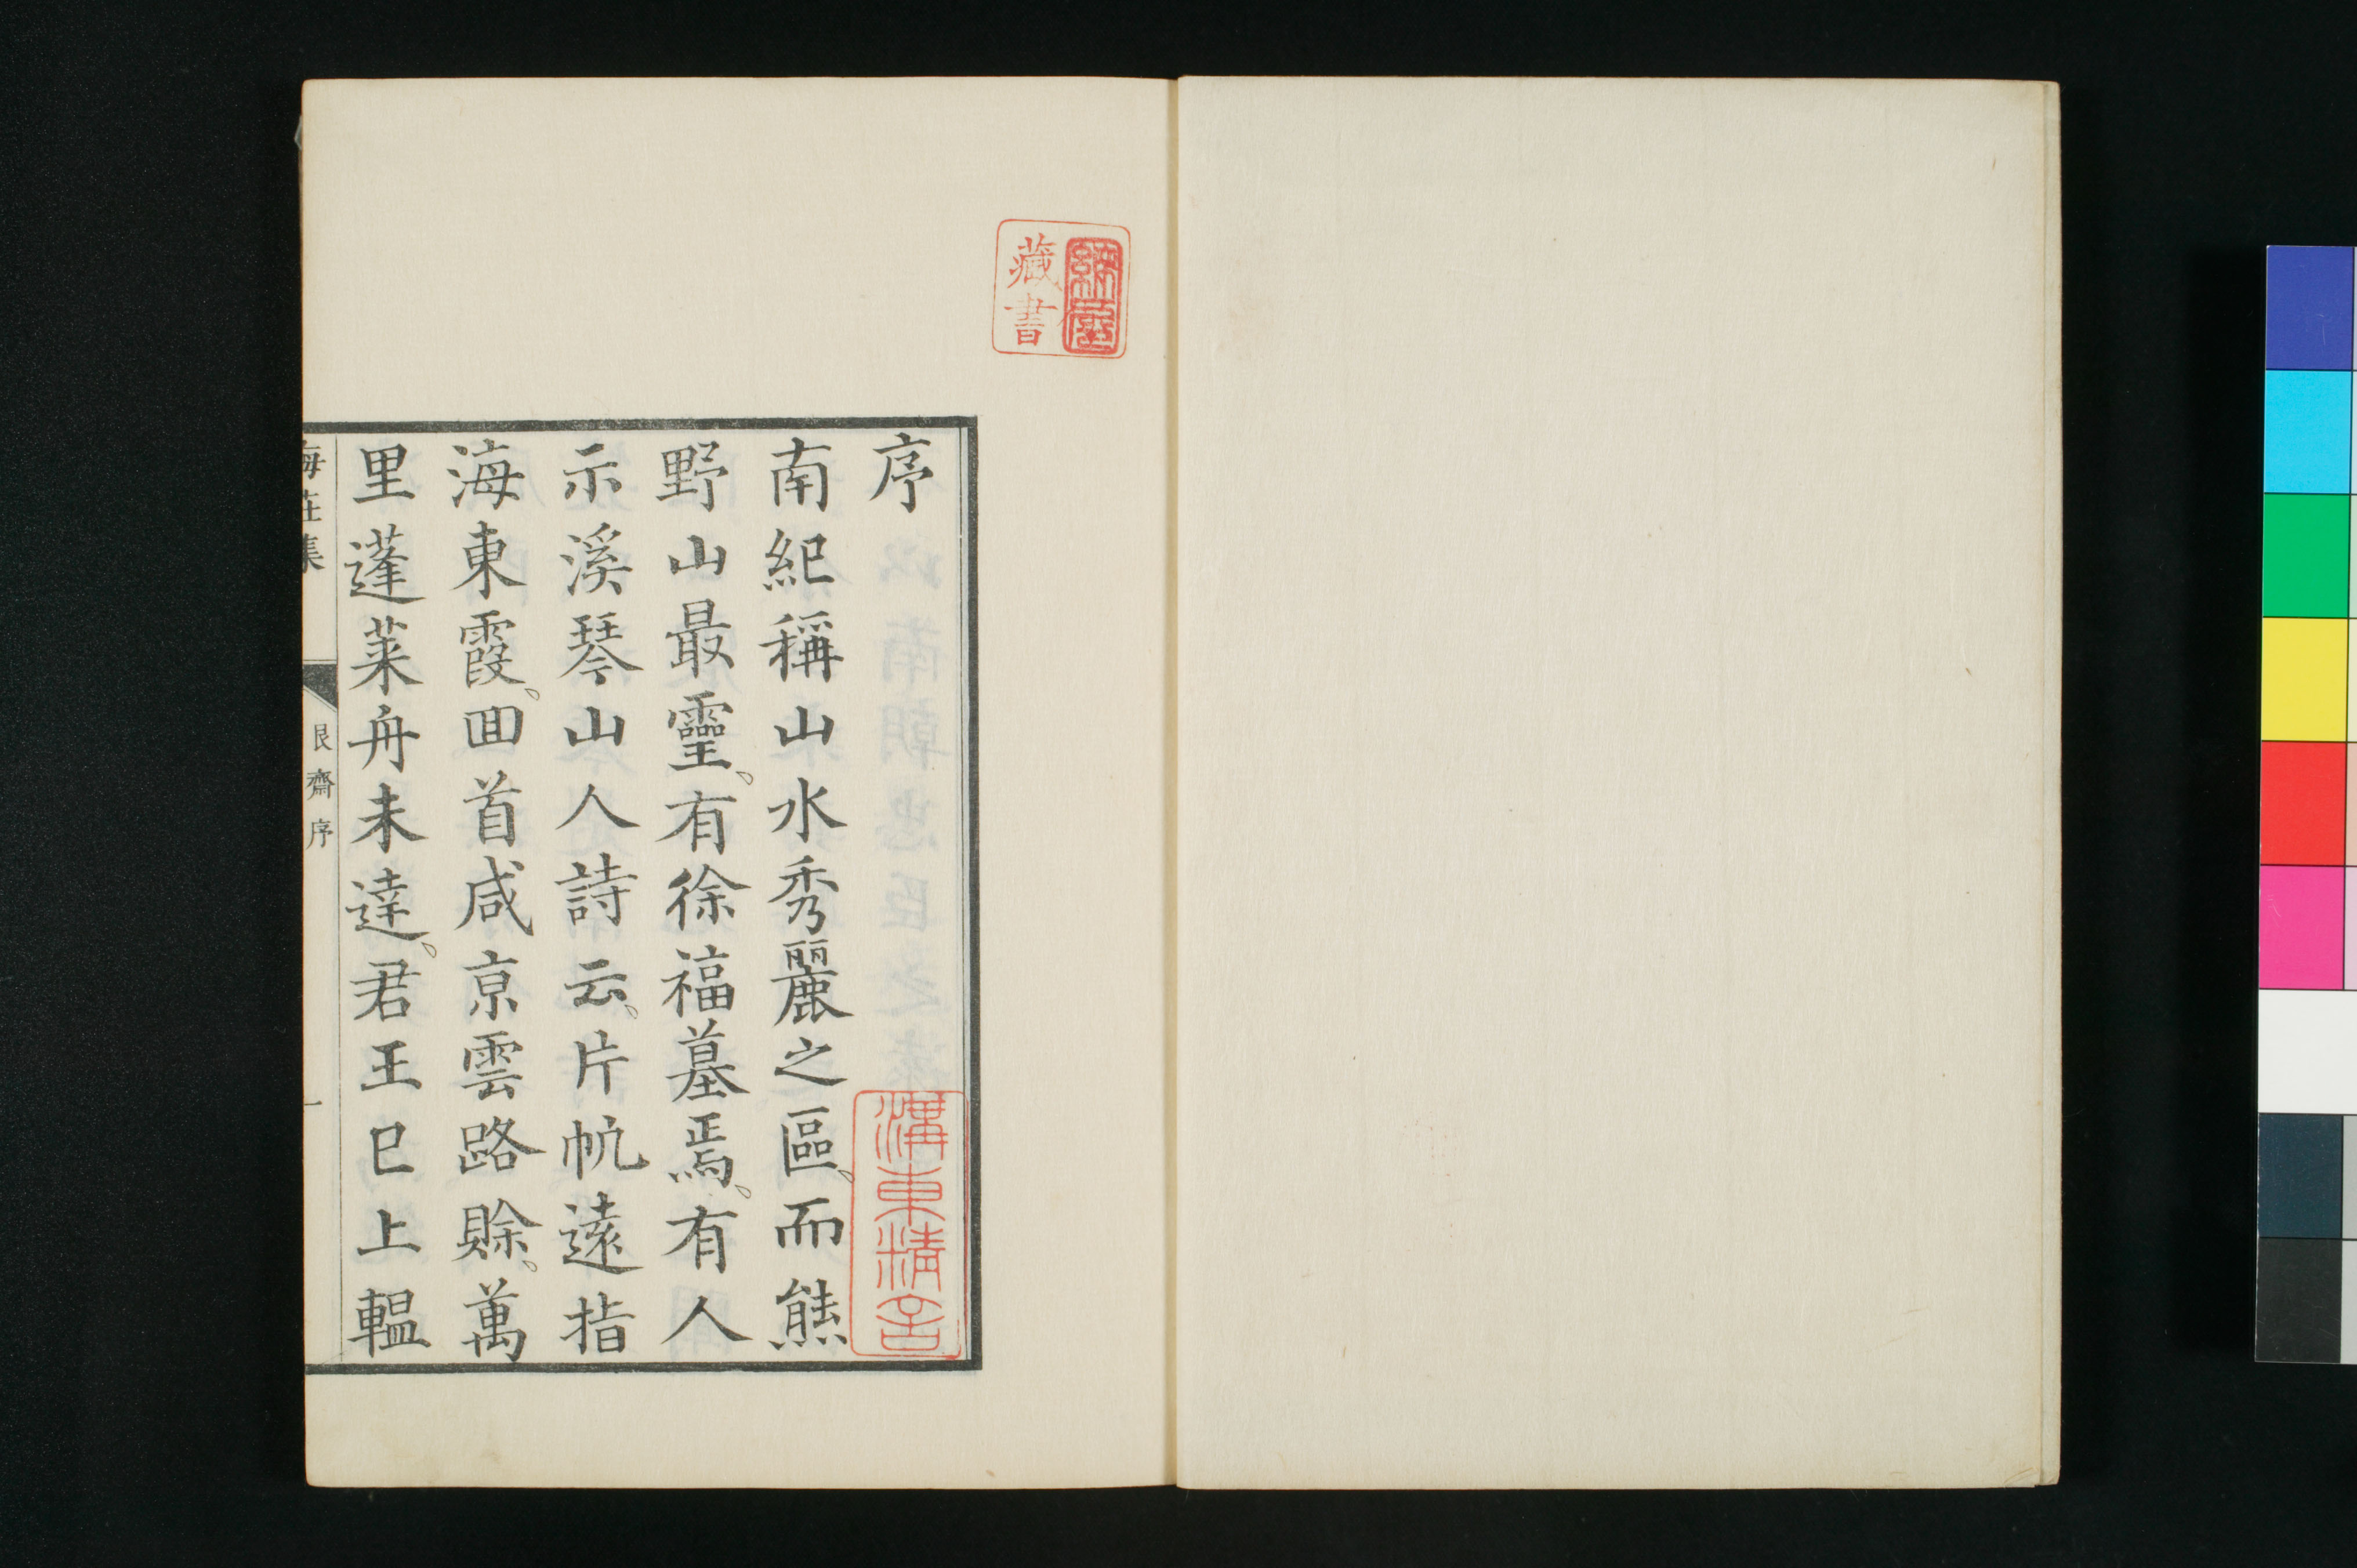 序
南紀稱山水秀麗之區。而熊
野山最靈。有徐福墓焉。有人
示溪琴山人詩云。片帆遠指
海東霞。回首咸京雲路賒。萬
里蓬萊舟未達。君王已上轀
海莊集
艮齋序
一
藏書
溝東精舍